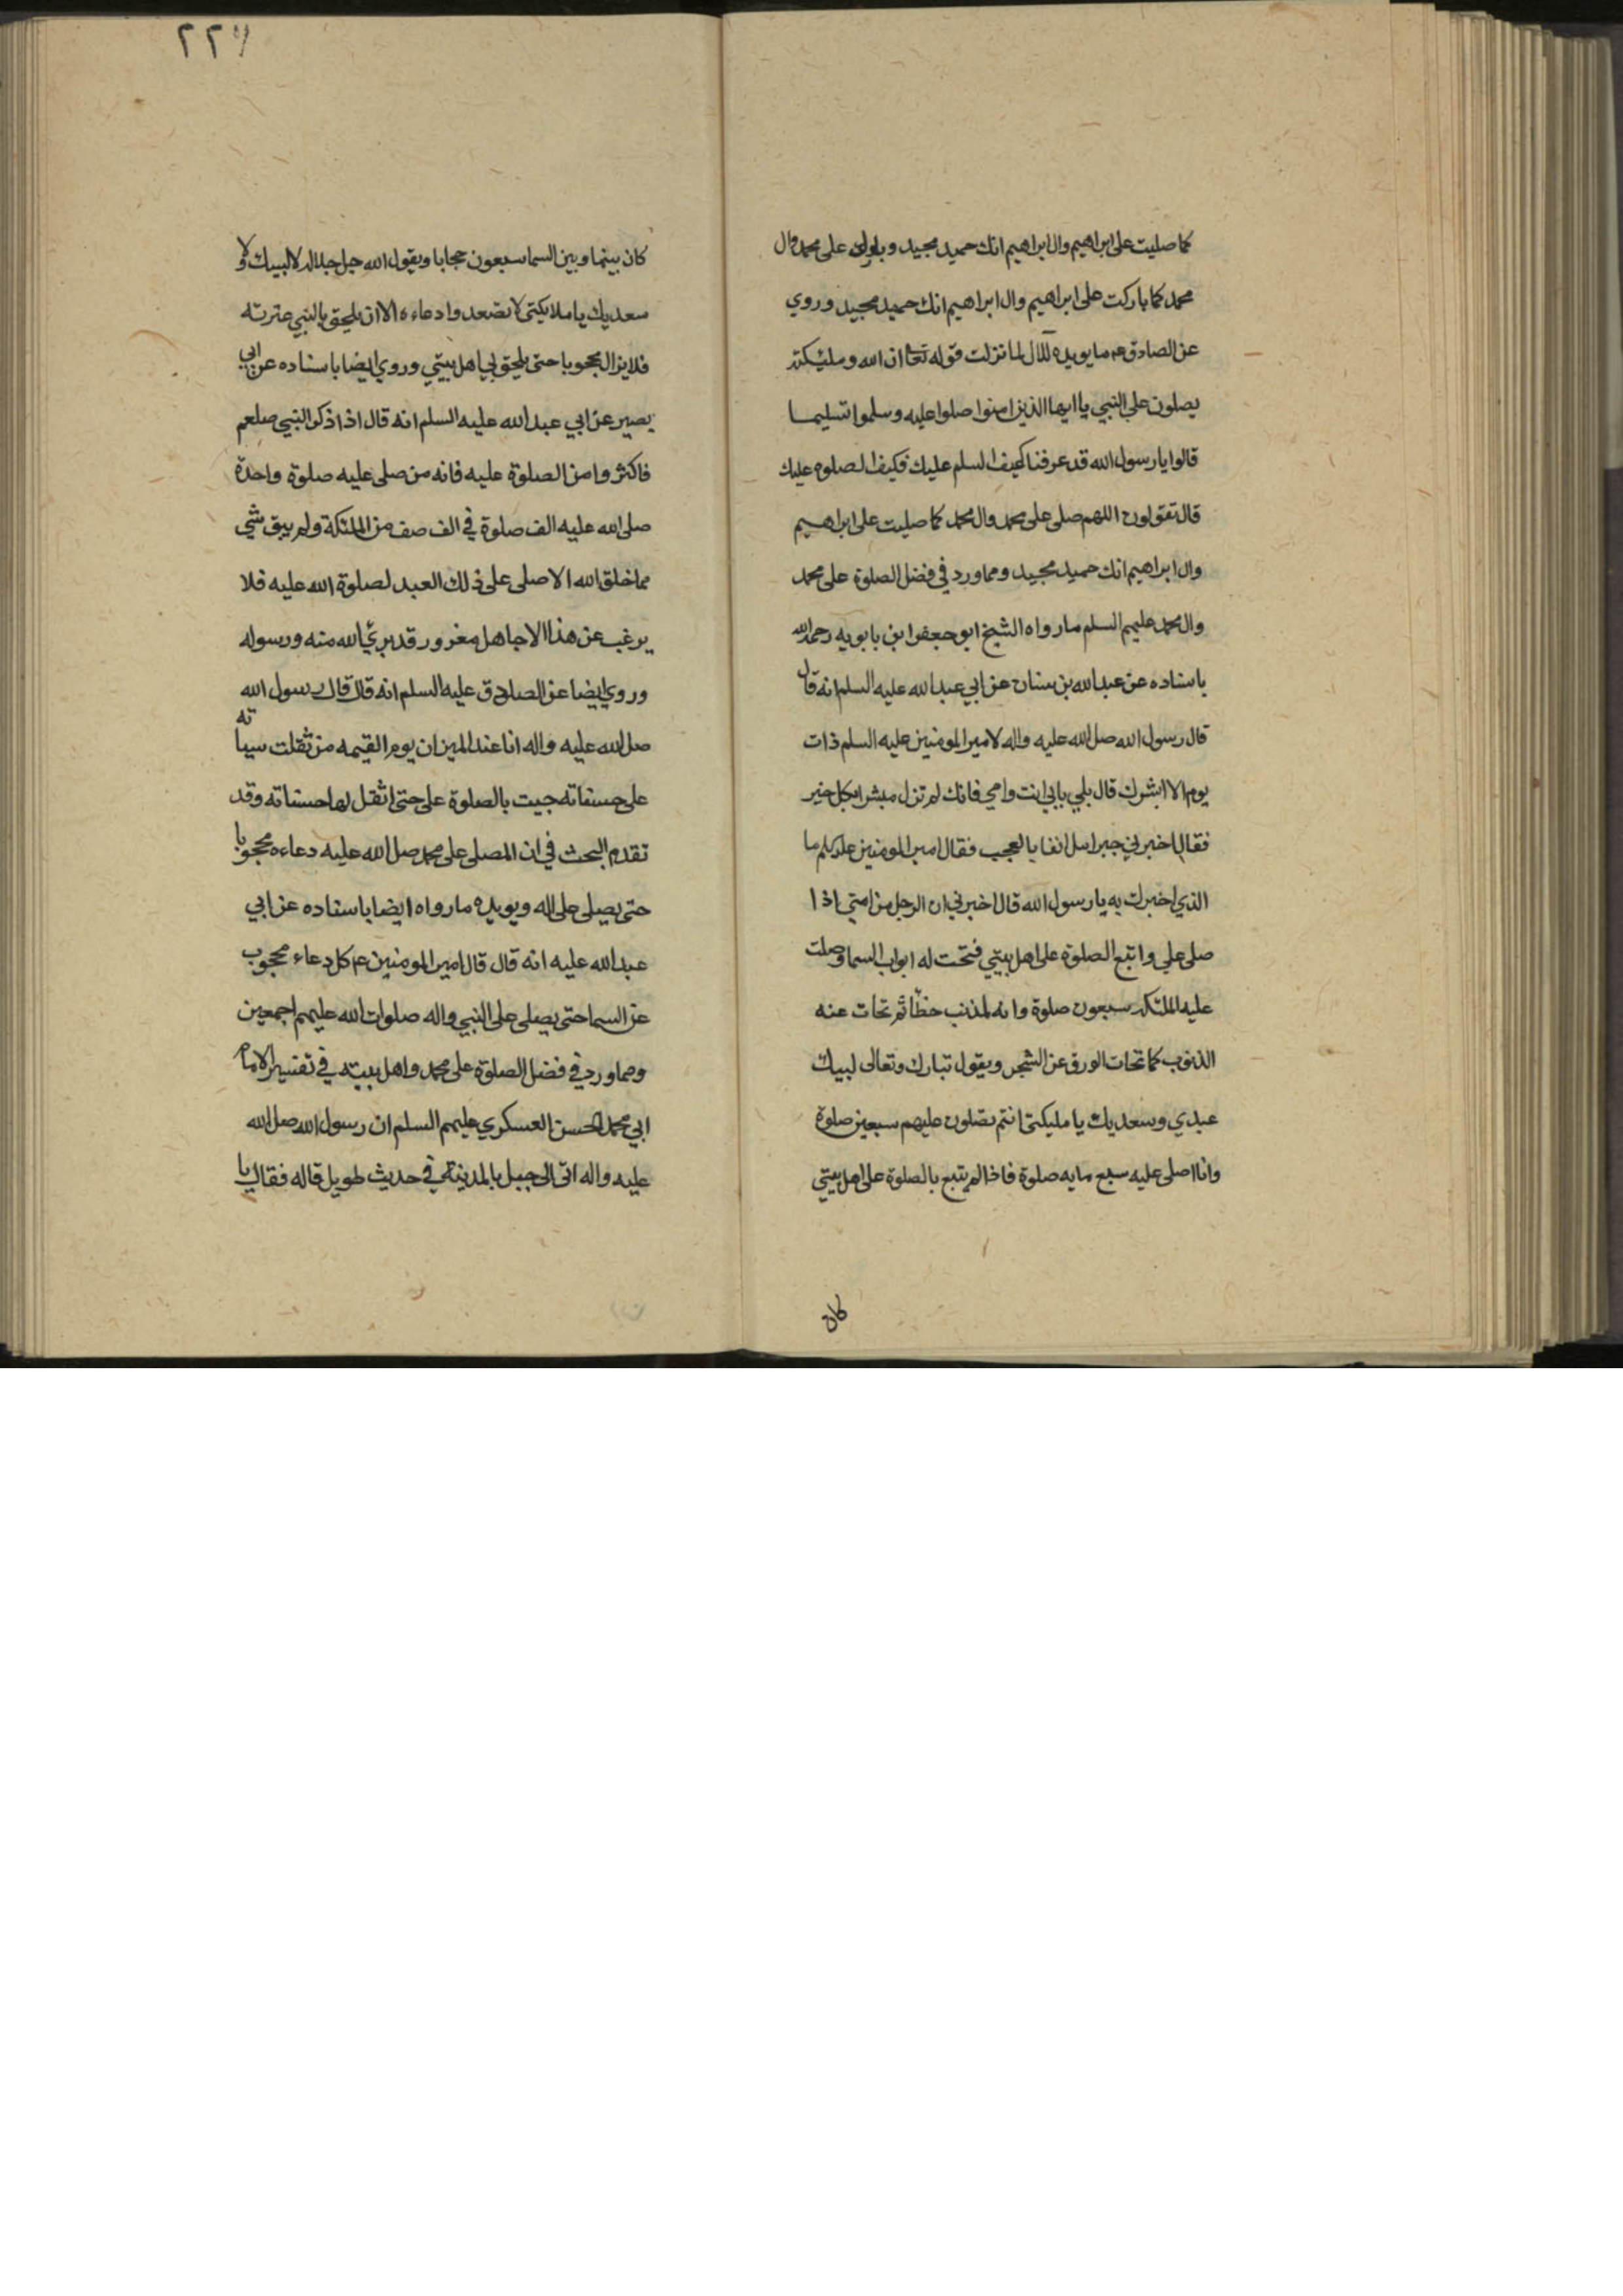 كما صليت على ابراهيم وال ابراهيم انك حميد مجيد وبارك على محمد وال
محمد كما باركت على ابراهيم وال ابراهيم انك حميد مجيد وروي
عن الصادق ع م ما يويده قال لما نزلت قوله تعا ان الله وملئكته
يصلون على النبي يا ايها الذين امنوا صلوا عليه وسلموا تسليما
قالوا يا رسول الله قد عرفنا كيف السلم عليك فكيف الصلوه عليك
قال تقولون اللهم صلى على محمد وال محمد كما صليت على ابراهيم
وال ابراهيم انك حميد مجيد ومما ورد في فضل الصلوة على محمد
وال محمد عليهم السلم ما رواه الشيخ ابو جعفر ابن بابويه رحمه الله
باسناده عن عبد الله بن سنان عن ابي عبد الله عليه السلم انه قال
قال رسول الله صل الله عليه واله لامير المومنين عليه السلم ذات
يوم الا ابشرك قال بلي بابي انت وامي فانك لم تزل مبشرا بكل خير
فقال اخبرني جبراىل انفا بالعجب فقال امير المومنين ما
الذي اخبرك به يا رسول الله قال اخبرني ان الرجل من امتي اذا
صلى علي واتبع الصلوة على اهل بيتي فتحت له ابواب السما وصلت
عليه الملئكه سبعون صلوة وانه لمذنب خطّا ثم تحات عنه
الذنوب كما تحات الورق عن الشجر ويقول تبارك وتعالى لبيك
عبدي وسعديك يا مليكتى انتم تصلون عليهم سبعين صلوة
وانا اصلى عليه سبع مايه صلوة فاذا لم يتبع بالصلوة على اهل بيتي
كان
٢٢٧
كان بينها وبين السما سبعون حجابا ويقول الله جل جلاله لا لبيك ولا
سعديك يا ملايكتى لا تصعدوا دعاءه الا ان يلحق بالنبي عترته
فلا يزال محجوبا حتى يلحق بي اهل بيتي وروي ايضا باسناده عن ابي
بصير عن ابي عبد الله عليه السلم انه قال اذا ذكر النبي صلعم
فاكثروا من الصلوة عليه فانه من صلى عليه صلوة واحدة
صلى الله عليه الف صلوة في الف صف من الملئكة ولم يبق شي
مما خلق الله الا صلى على ذلك العبد لصلوة الله عليه فلا
يرغب عن هذا الا جاهل مغرور قد بري الله منه ورسوله
وروي ايضا عن الصادق عليه السلم انه قال قال رسول الله
صل الله عليه واله انا عند الميزان يوم القيمه من ثقلت سياته
على حسناته جيت بالصلوة على حتى اثقل لها حسناته وقد
تقدم البحث في ان المصلى على محمد صل الله عليه دعاءه محجوبا
حتى يصلى على اله ويويده ما رواه ايضا باسناده عن ابي
عبد الله عليه انه قال قال امير المومنين ع م كل دعاء محجوب
عن السما حتى يصلى على النبي واله صلوات الله عليهم اجمعين
ومما ورد في فضل الصلوة على محمد واهل بيته في تفسير الامام
ابي محمد الحسن العسكري عليهم السلم ان رسول الله صل الله
عليه واله اتى الى جبل بالمدينة في حديث طويل قاله فقال يا